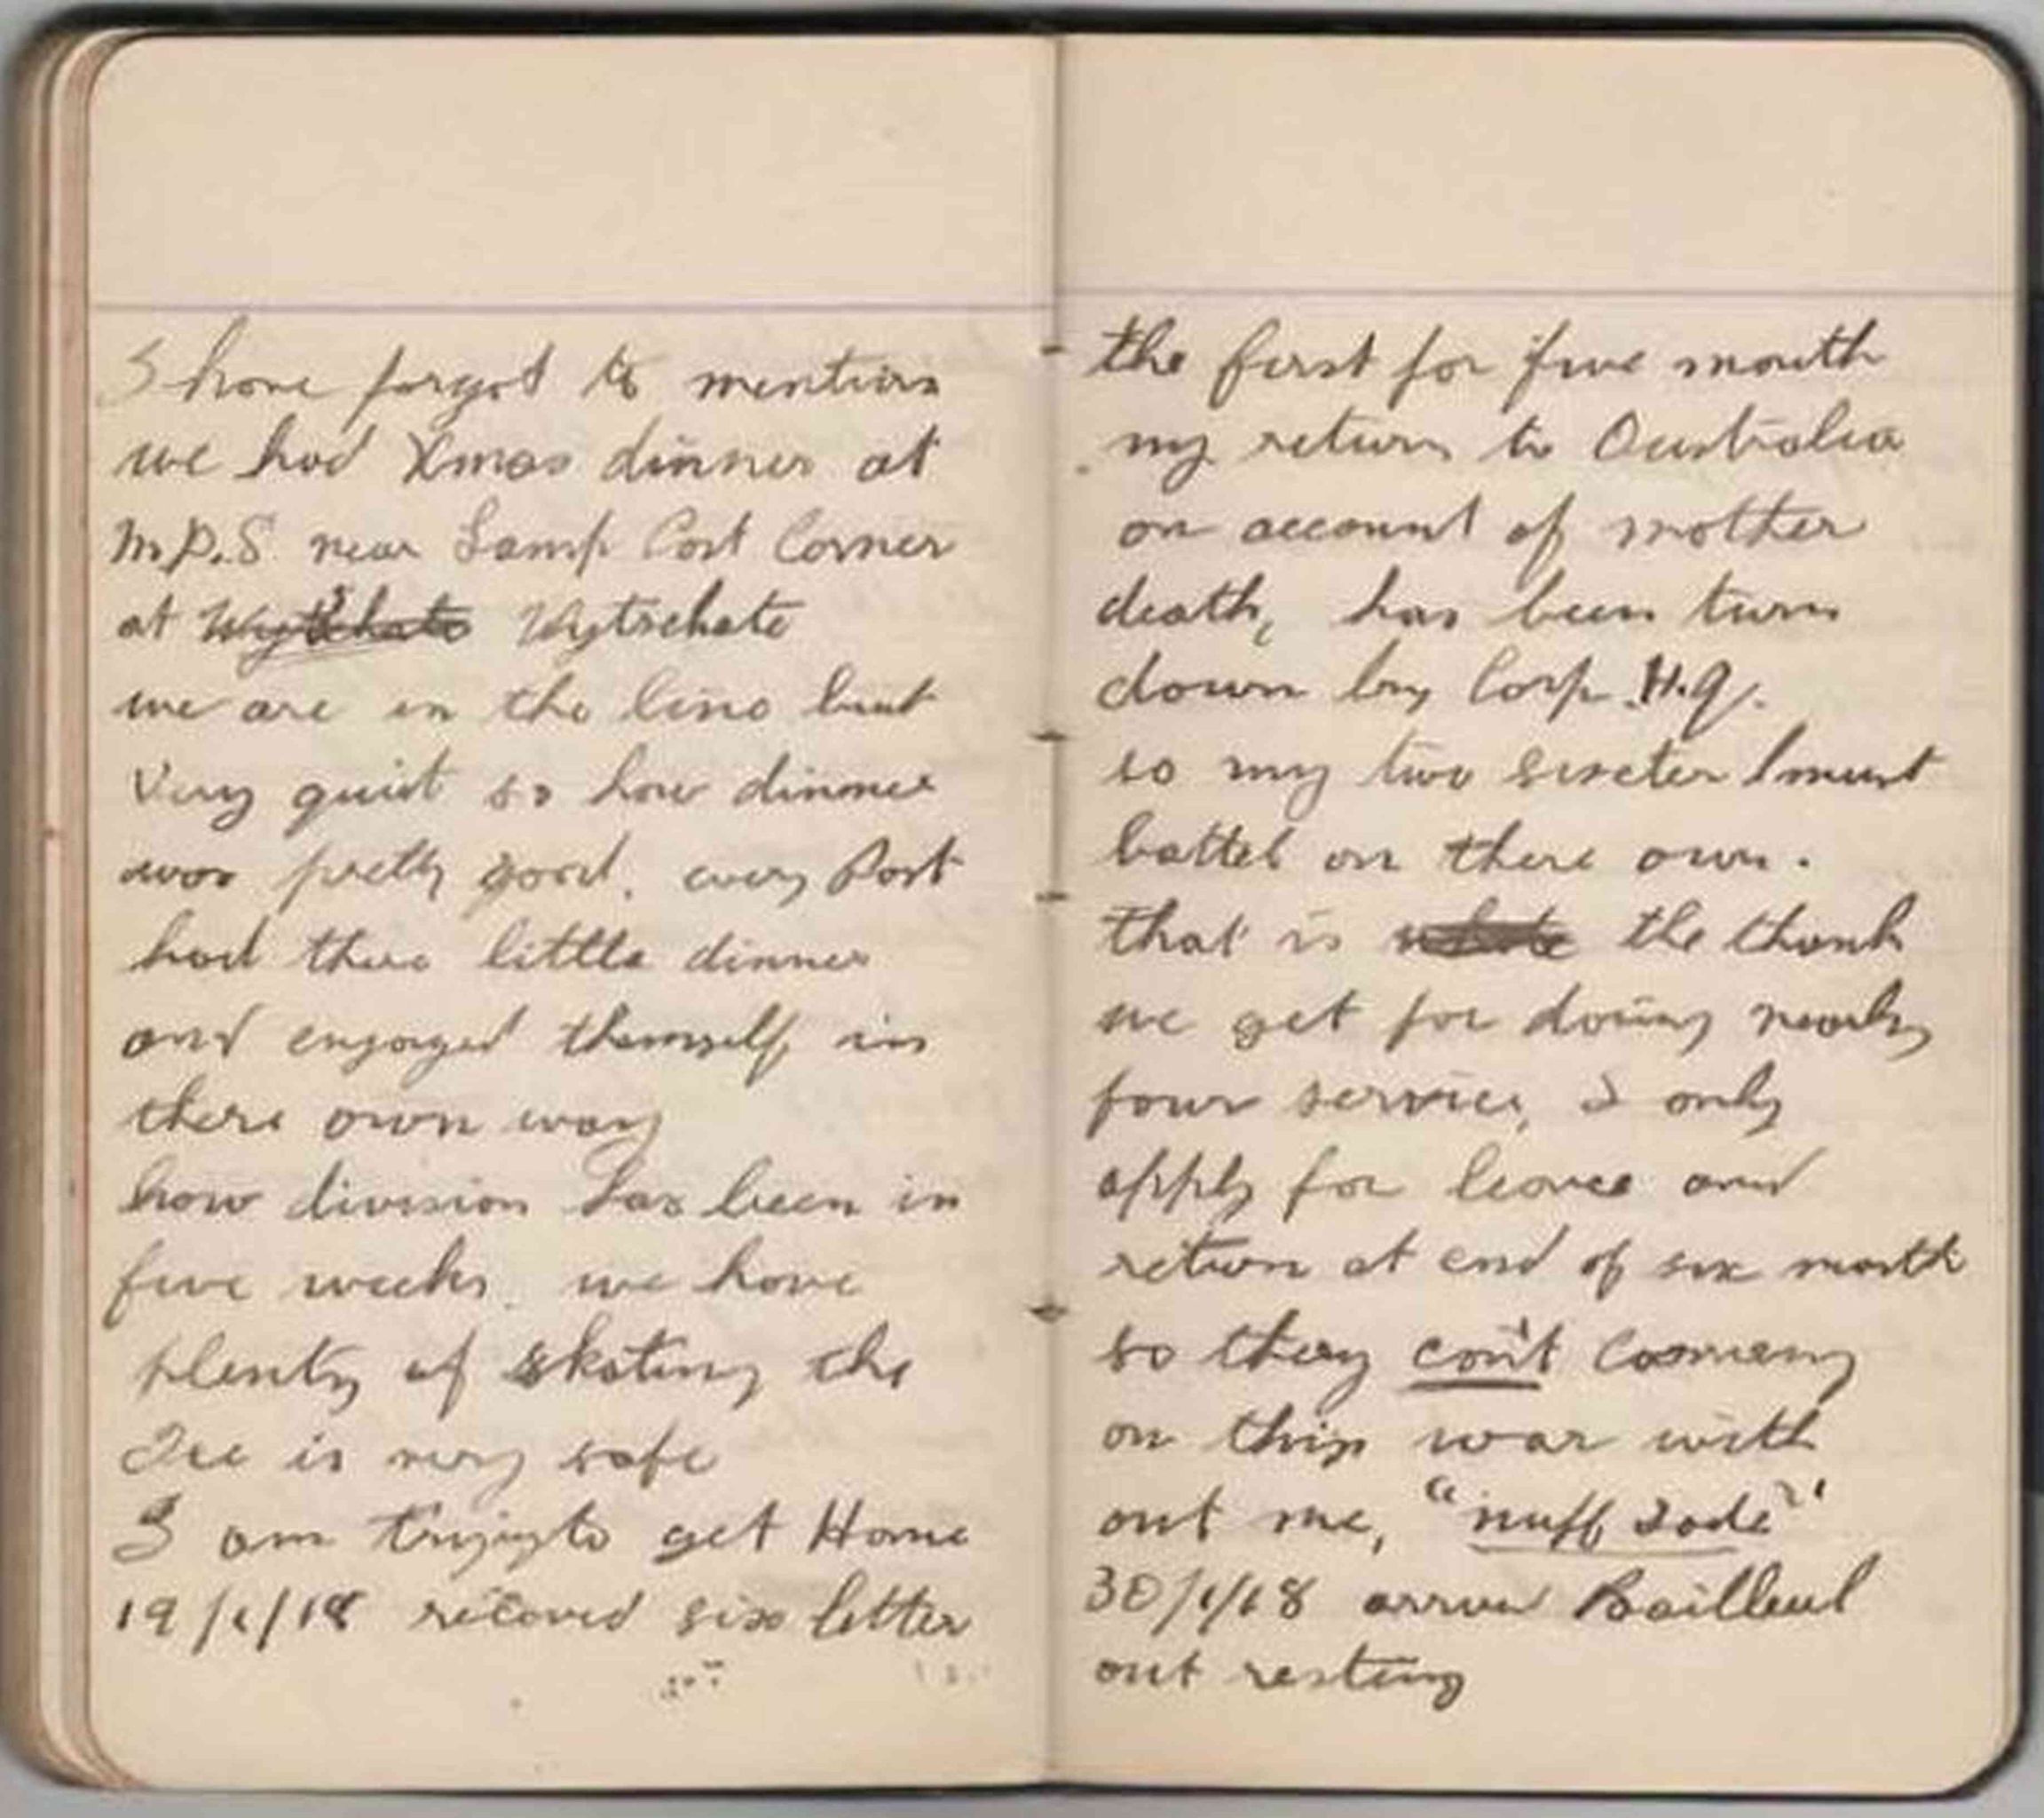 I have forgot to mention
we had Xmas dinner at
M.D.S. near Lamp Post Corner
at Wytschate Wytschate
we are in the line but
Very quiet so how dinner
was pretty good. every Post
had there little dinner
and engoyed themself in
there own way
how division has been in
five weeks. we have
plenty of skating the
Ice is very safe
I am trying to get Home
19/1/18 recoved six letter
the first for five month
my return to Australia
on account of mother
death, has been turn
down by Corp. H.Q.
so my two sisster must
battel on there own.
that is the thank
we get for doing nearly
four service, I only
apply for leave and
return at end of six month
so they con't
on this war with
out me, "nuff sade"
30/1/18 arrive Bailleul
out resting